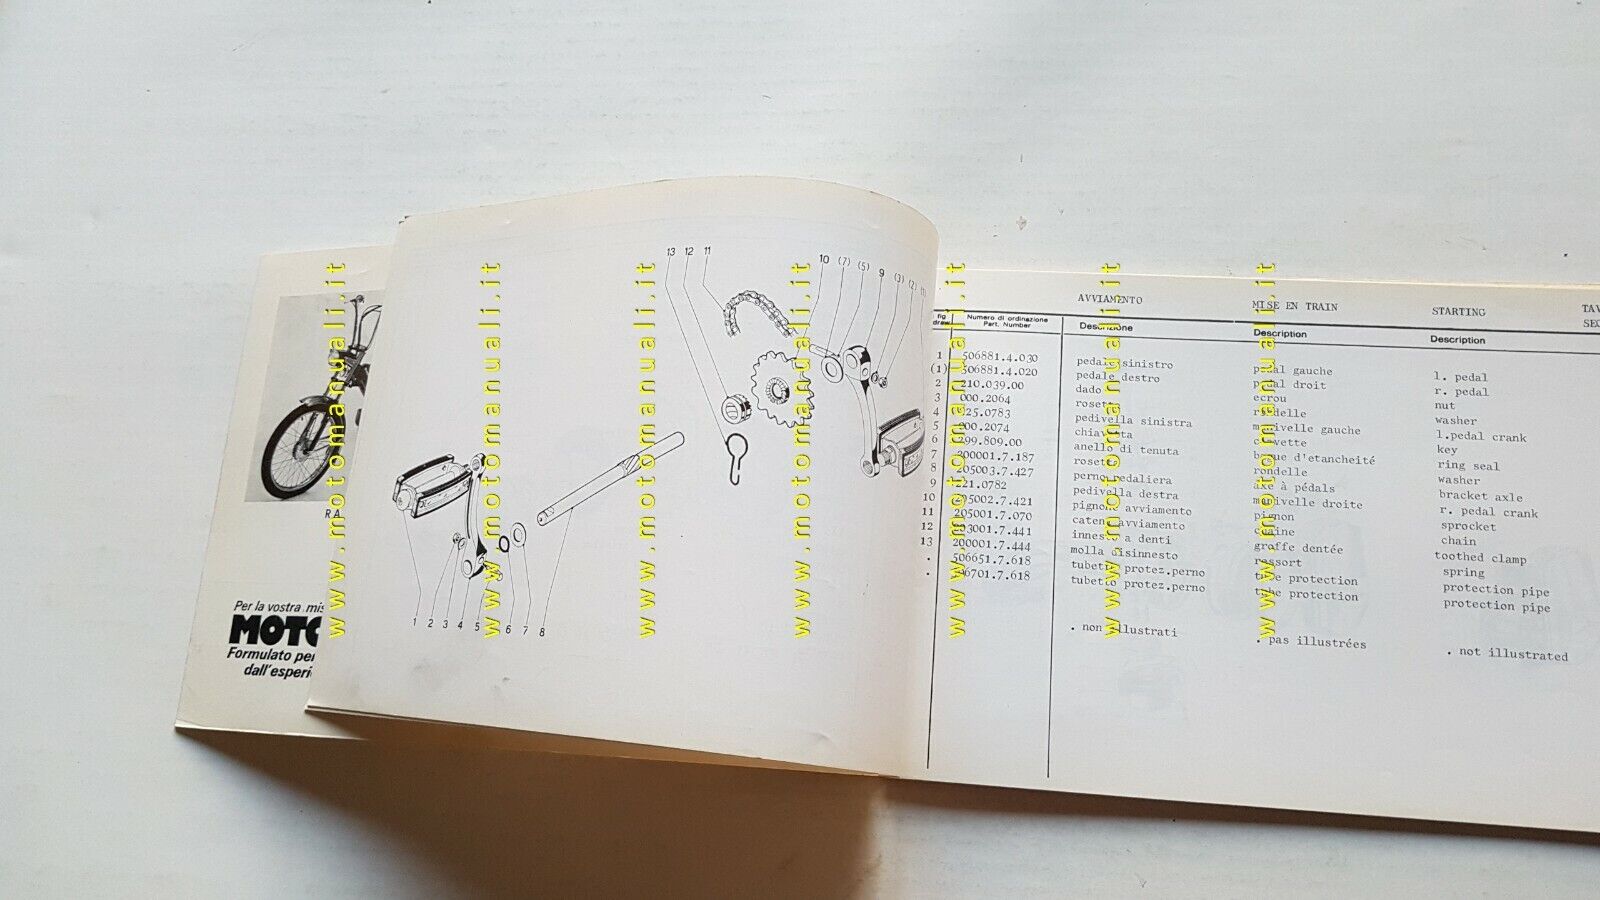 13 12 11
10 (7) (5) 9 (3) (2) (1)
1 2 3 4 5 6 7 8
R.A.
Per la vostra mis
MOTO
Formulato per
dall'esperi
AVVIAMENTO MISE EN TRAIN STARTING TAV
SE
fig Numero di ordinazione Descrizione Description Description
draw Part. Number
1 506881.4.030 pedale sinistro pedal gauche l. pedal
(1) 506881.4.020 pedale destro pedal droit r. pedal
2 210.039.00 dado ecrou nut
3 000.2064 rosetta rondelle washer
4 0783 pedivella sinistra manivelle gauche l.pedal crank
5 2074 chiavetta clavette key
6 299.809.00 anello di tenuta bague d'etancheité ring seal
7 200001.7.187 rosetta rondelle washer
8 205003.7.427 perno pedaliera axe à pédals bracket axle
9 221.0782 pedivella destra manivelle droite r. pedal crank
10 205002.7.421 pignone avviamento pignon sprocket
11 205001.7.070 catena avviamento chaine chain
12 3001.7.441 innesto a denti groffe dentée toothed clamp
13 200001.7.444 molla disinnesto ressort spring
. 506651.7.618 tubetto protez.perno tube protection protection pipe
. 6701.7.618 tubetto protez.perno tube protection protection pipe
. non illustrati . pas illustrées . not illustrated
www.motomanuali.it
www.motomanuali.it
www.motomanuali.it
www.motomanuali.it
www.motomanuali.it
www.motomanuali.it
www.motomanuali.it